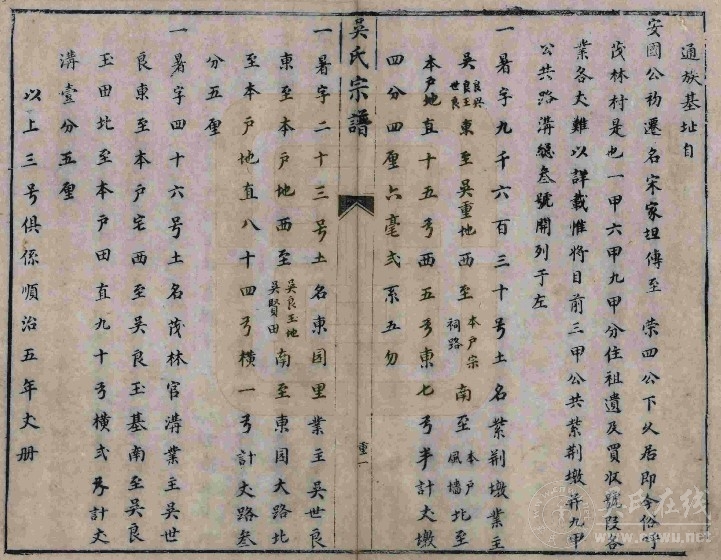 通族基址自
安國公初遷名宋家坦傳至 荣四公下火居即今俗呼
茂林村是也一甲六甲九甲分住祖遺及買收號段各
業各夫難以詳載惟将目前三甲公共紫荆墩并九甲
公共路溝總叁號開列于左
一暑字九千六百三十号土名紫荆墩業主
吳良玉世良東至吳重地西至本戸宗祠路南至本戸風墻北至
本戸地直十五弓西五弓東七弓半計丈墩
四分四厘六毫弍系五勿
吳氏宗譜
一
一暑字二十三号土名東园里業主吳世良
東至本戸地西至吳良玉地吳賢田南至東园大路北
至本戸地直八十四弓横一弓計丈路叁
分五厘
一暑字四十六号土名茂林官溝業主吳世
良東至本戸宅西至吳良玉基南至吳良
玉田北至本戸田直九十弓横弍弓計丈
溝壹分五厘
以上三号俱係順治五年丈册
吴氏在线
www.cnwu.net